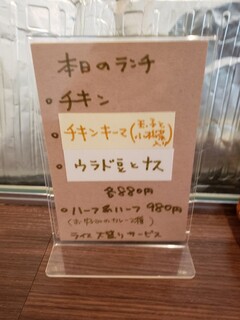 本日のランチ
・チキン
・チキンキーマ(玉子と小松菜入り)
・ウラド豆とナス
各880円
・ハーフ&ハーフ 980円
ライス大盛りサービス